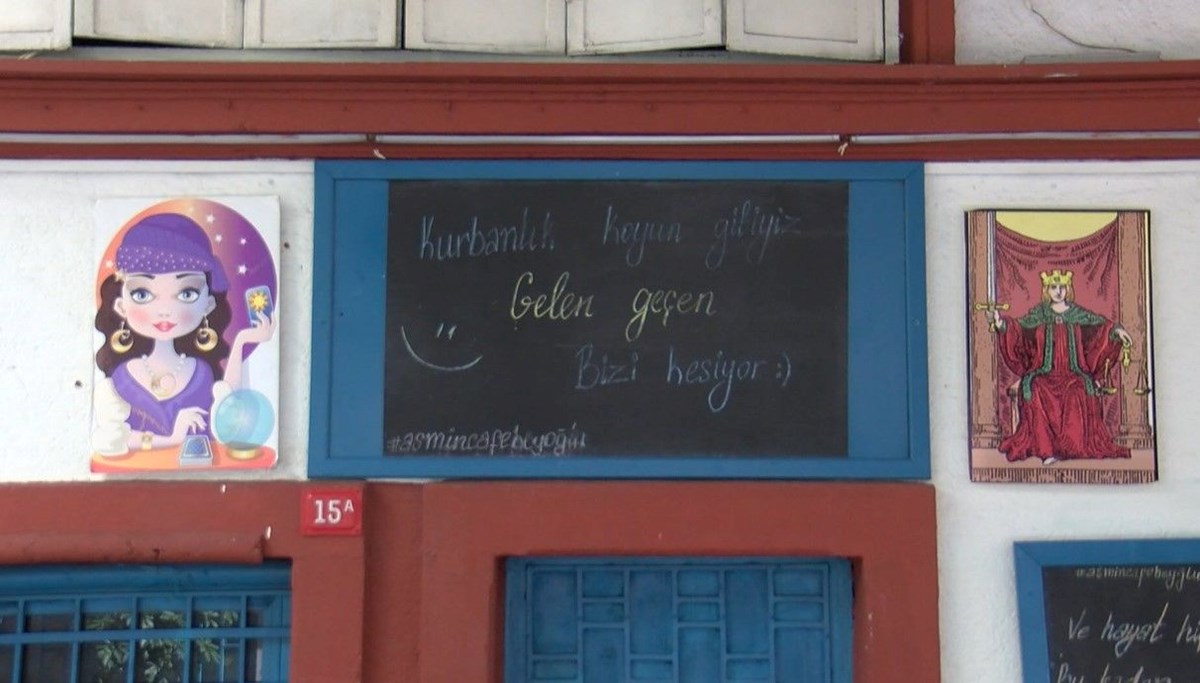 Kurbanlık koyun gibiyiz
Gelen geçen
Bizi kesiyor :)
#asmincafebeyoğlu
15A
#asmincafebeyoğlu
Ve hayat
bu kadar